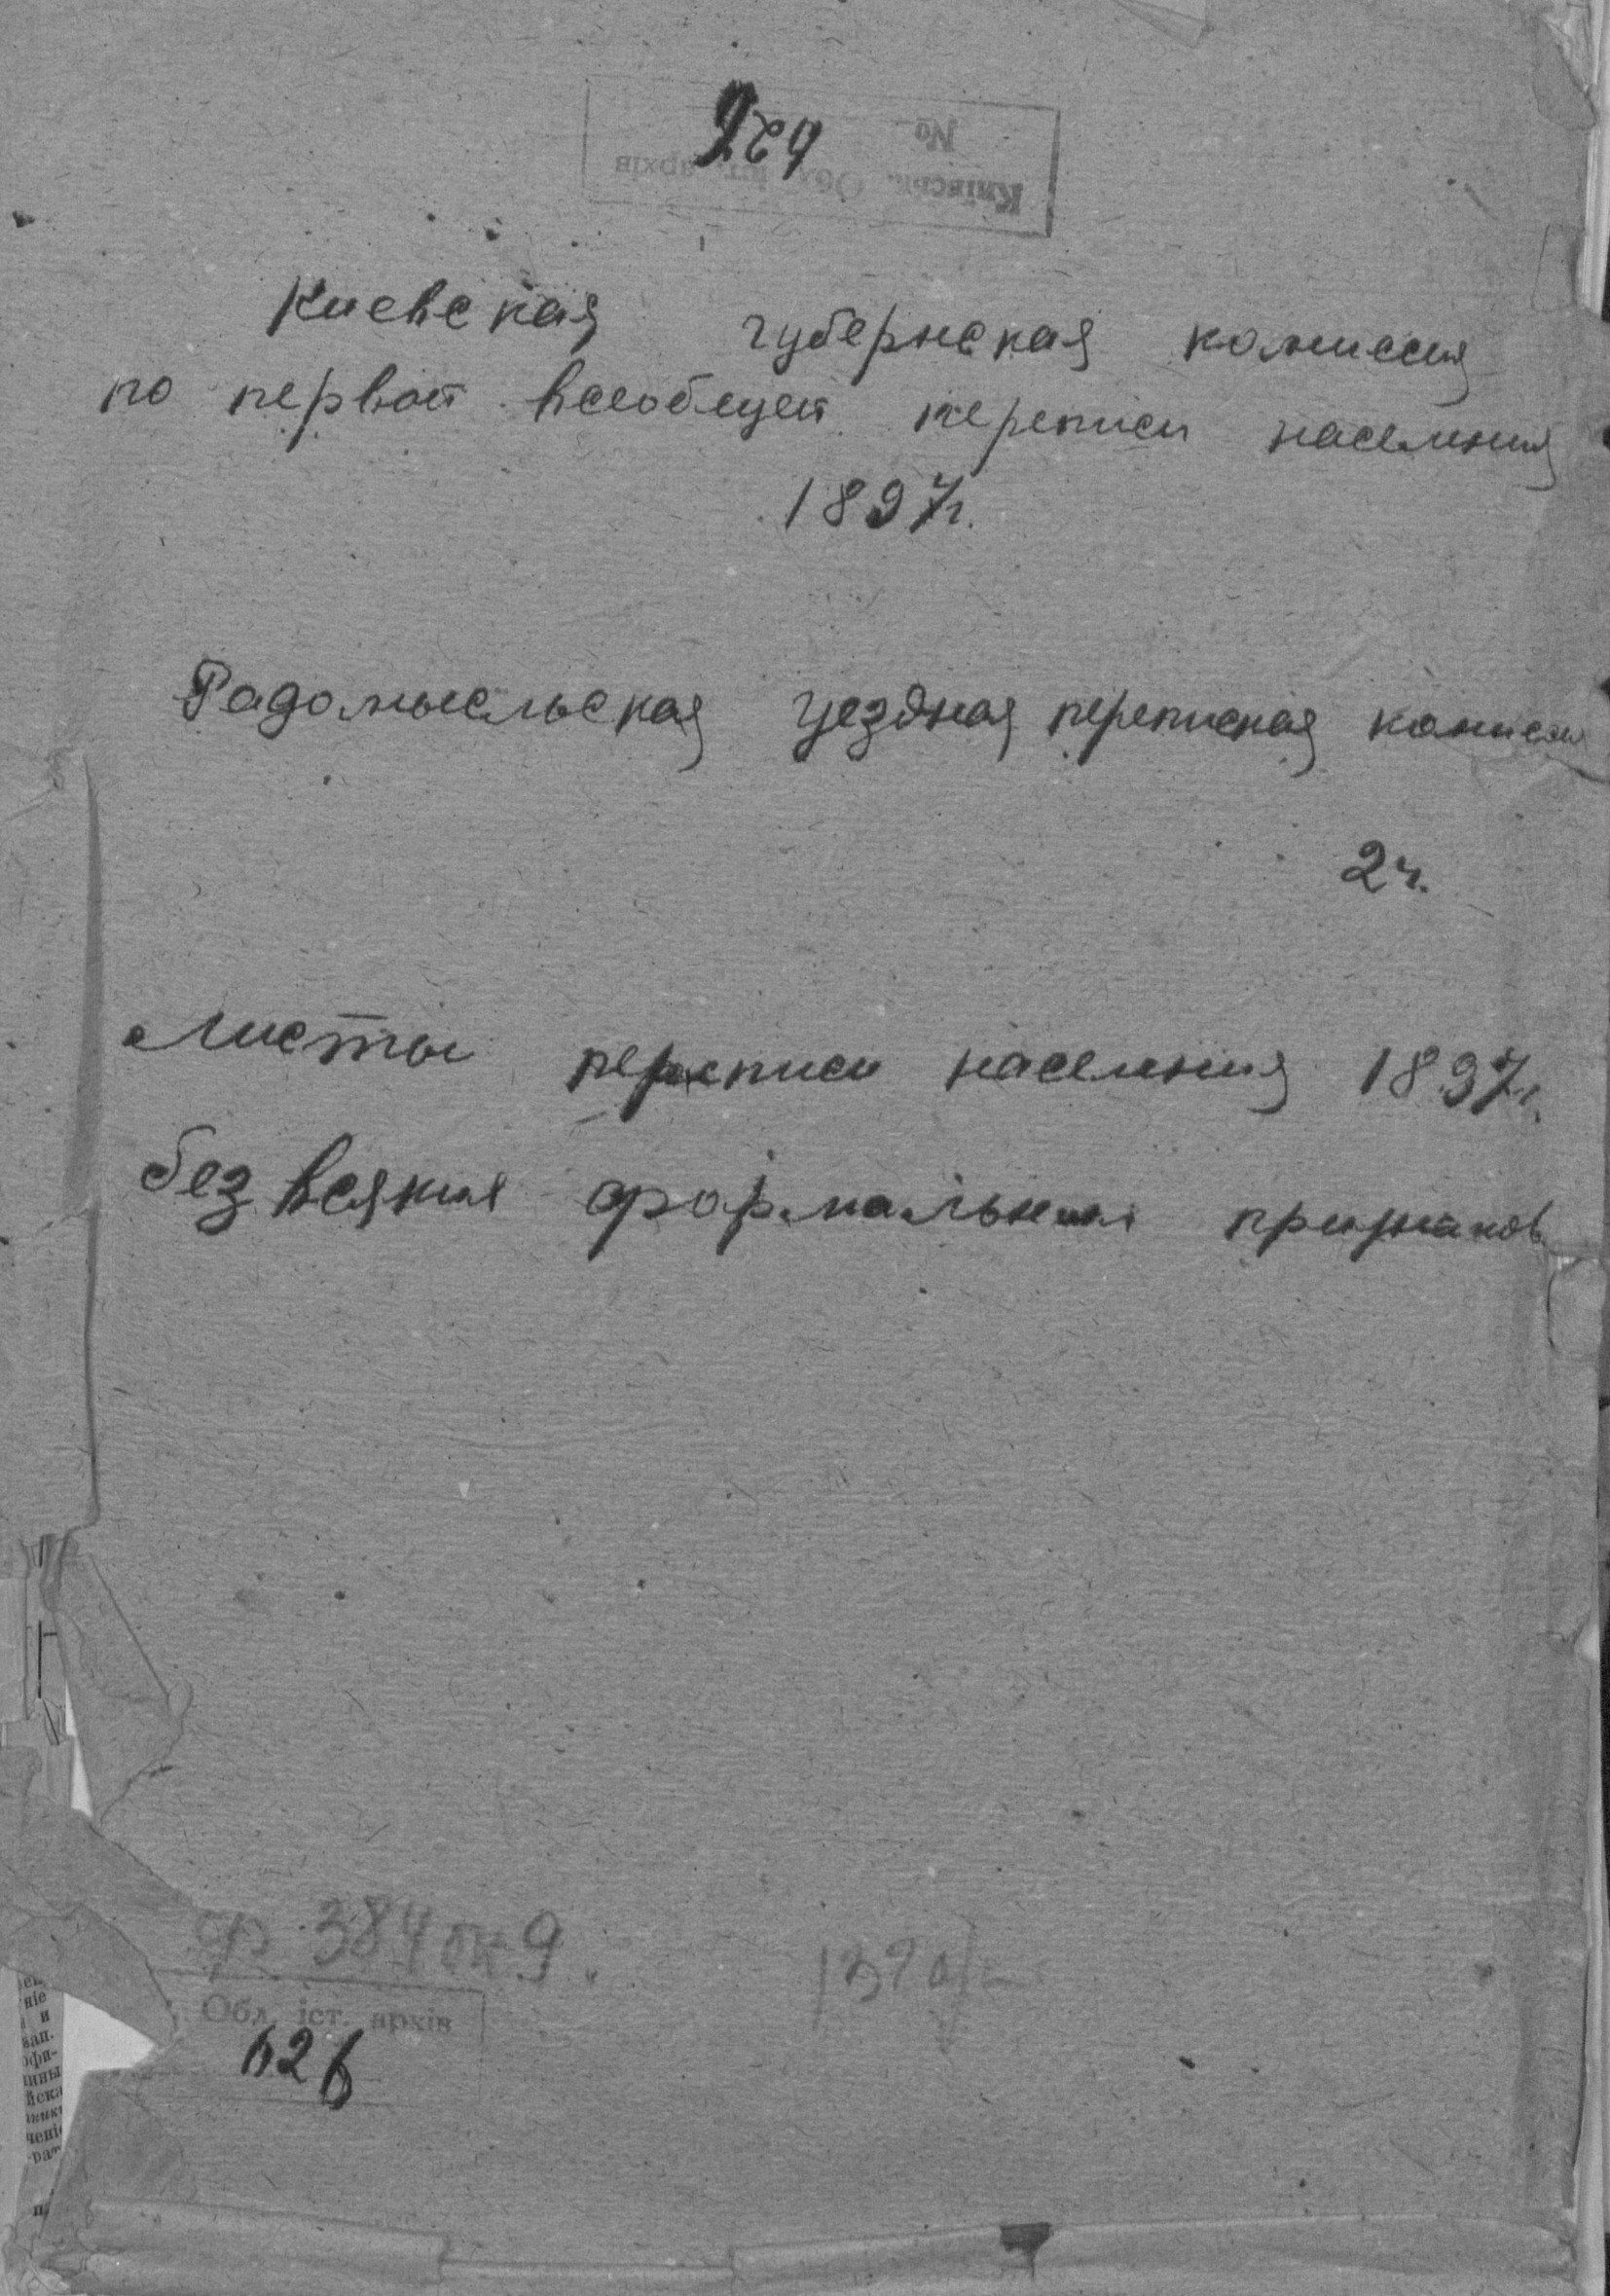 №
Київськ. Обл. іст. архів
Киевская губернская комиссия
по первой всеобщей переписи населения
1897г.
Радомысльская уездная переписная комиссия
2ч.
Листы переписи населения 1897г.
без всяких формальных признаков
ф 384 оп 9.
Обл. іст. архів
626